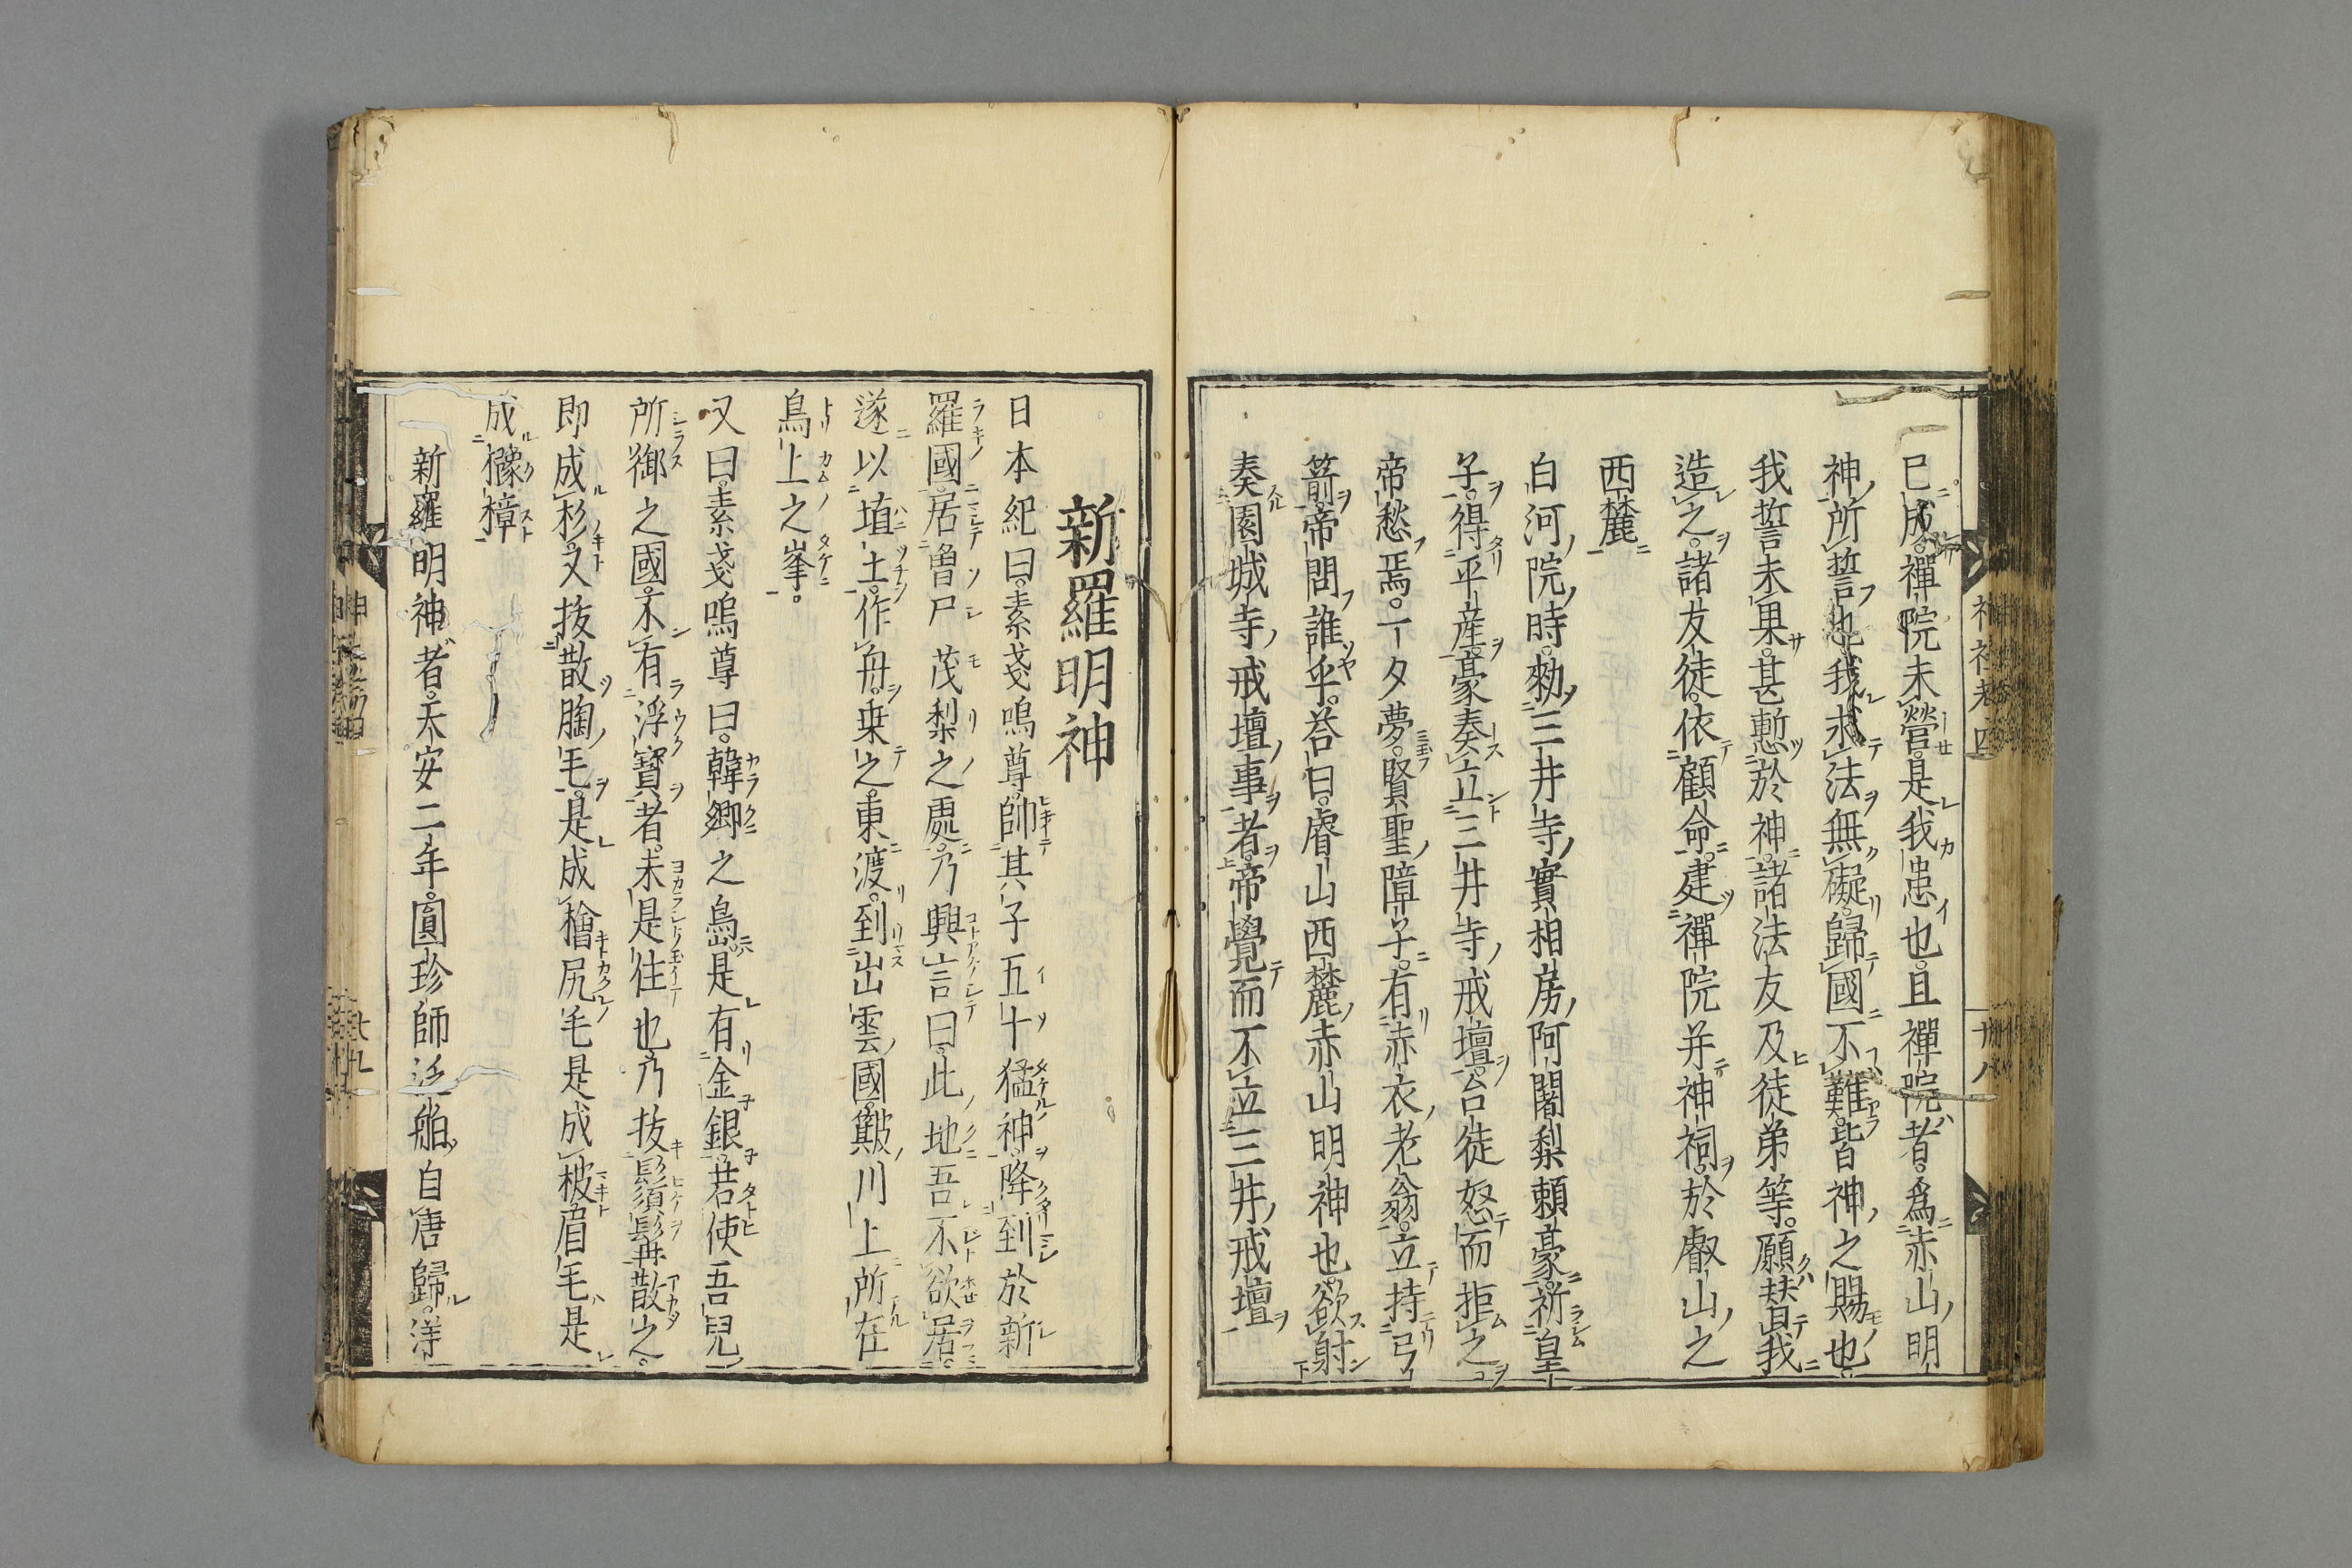 已成。禪院未營。是我患也。且禪院者。爲赤山明
神所誓也。我求法無礙。歸國不難。皆神之賜也。
我誓未果。甚慙於神。諸法友及徒弟等。願替我
造之。諸友徒。依顧命。建禪院并神祠。於睿山之
西麓
白河院時。勑三井寺實相房阿闍梨賴豪。祈皇
子。得平産。豪奏立三井寺戒壇。台徒怒而拒之
帝愁焉。一夕夢。賢聖障子。有赤衣老翁。立持弓
箭。帝問誰乎。荅曰。睿山西麓赤山明神也。欲射
奏園城寺戒壇事者。帝覺而不立三井戒壇
新羅明神
日本紀曰。素戔嗚尊。帥其子五十猛神。降到於新
羅國。居曽尸茂梨之處。乃興言曰。此地吾不欲居。
遂以埴土。作舟。乘之。東渡。到出雲國簸川上所在
鳥上之峯。
又曰。素戔嗚尊曰。韓鄕之島。是有金銀。若使吾兒
所御之國。不有浮寶者。未是佳也。乃抜鬚髯散之。
即成杉。又抜散胸毛。是成檜。尻毛是成柀。眉毛是
成櫲樟
新羅明神者。天安二年。圓珍師泛舶。自唐歸。洋